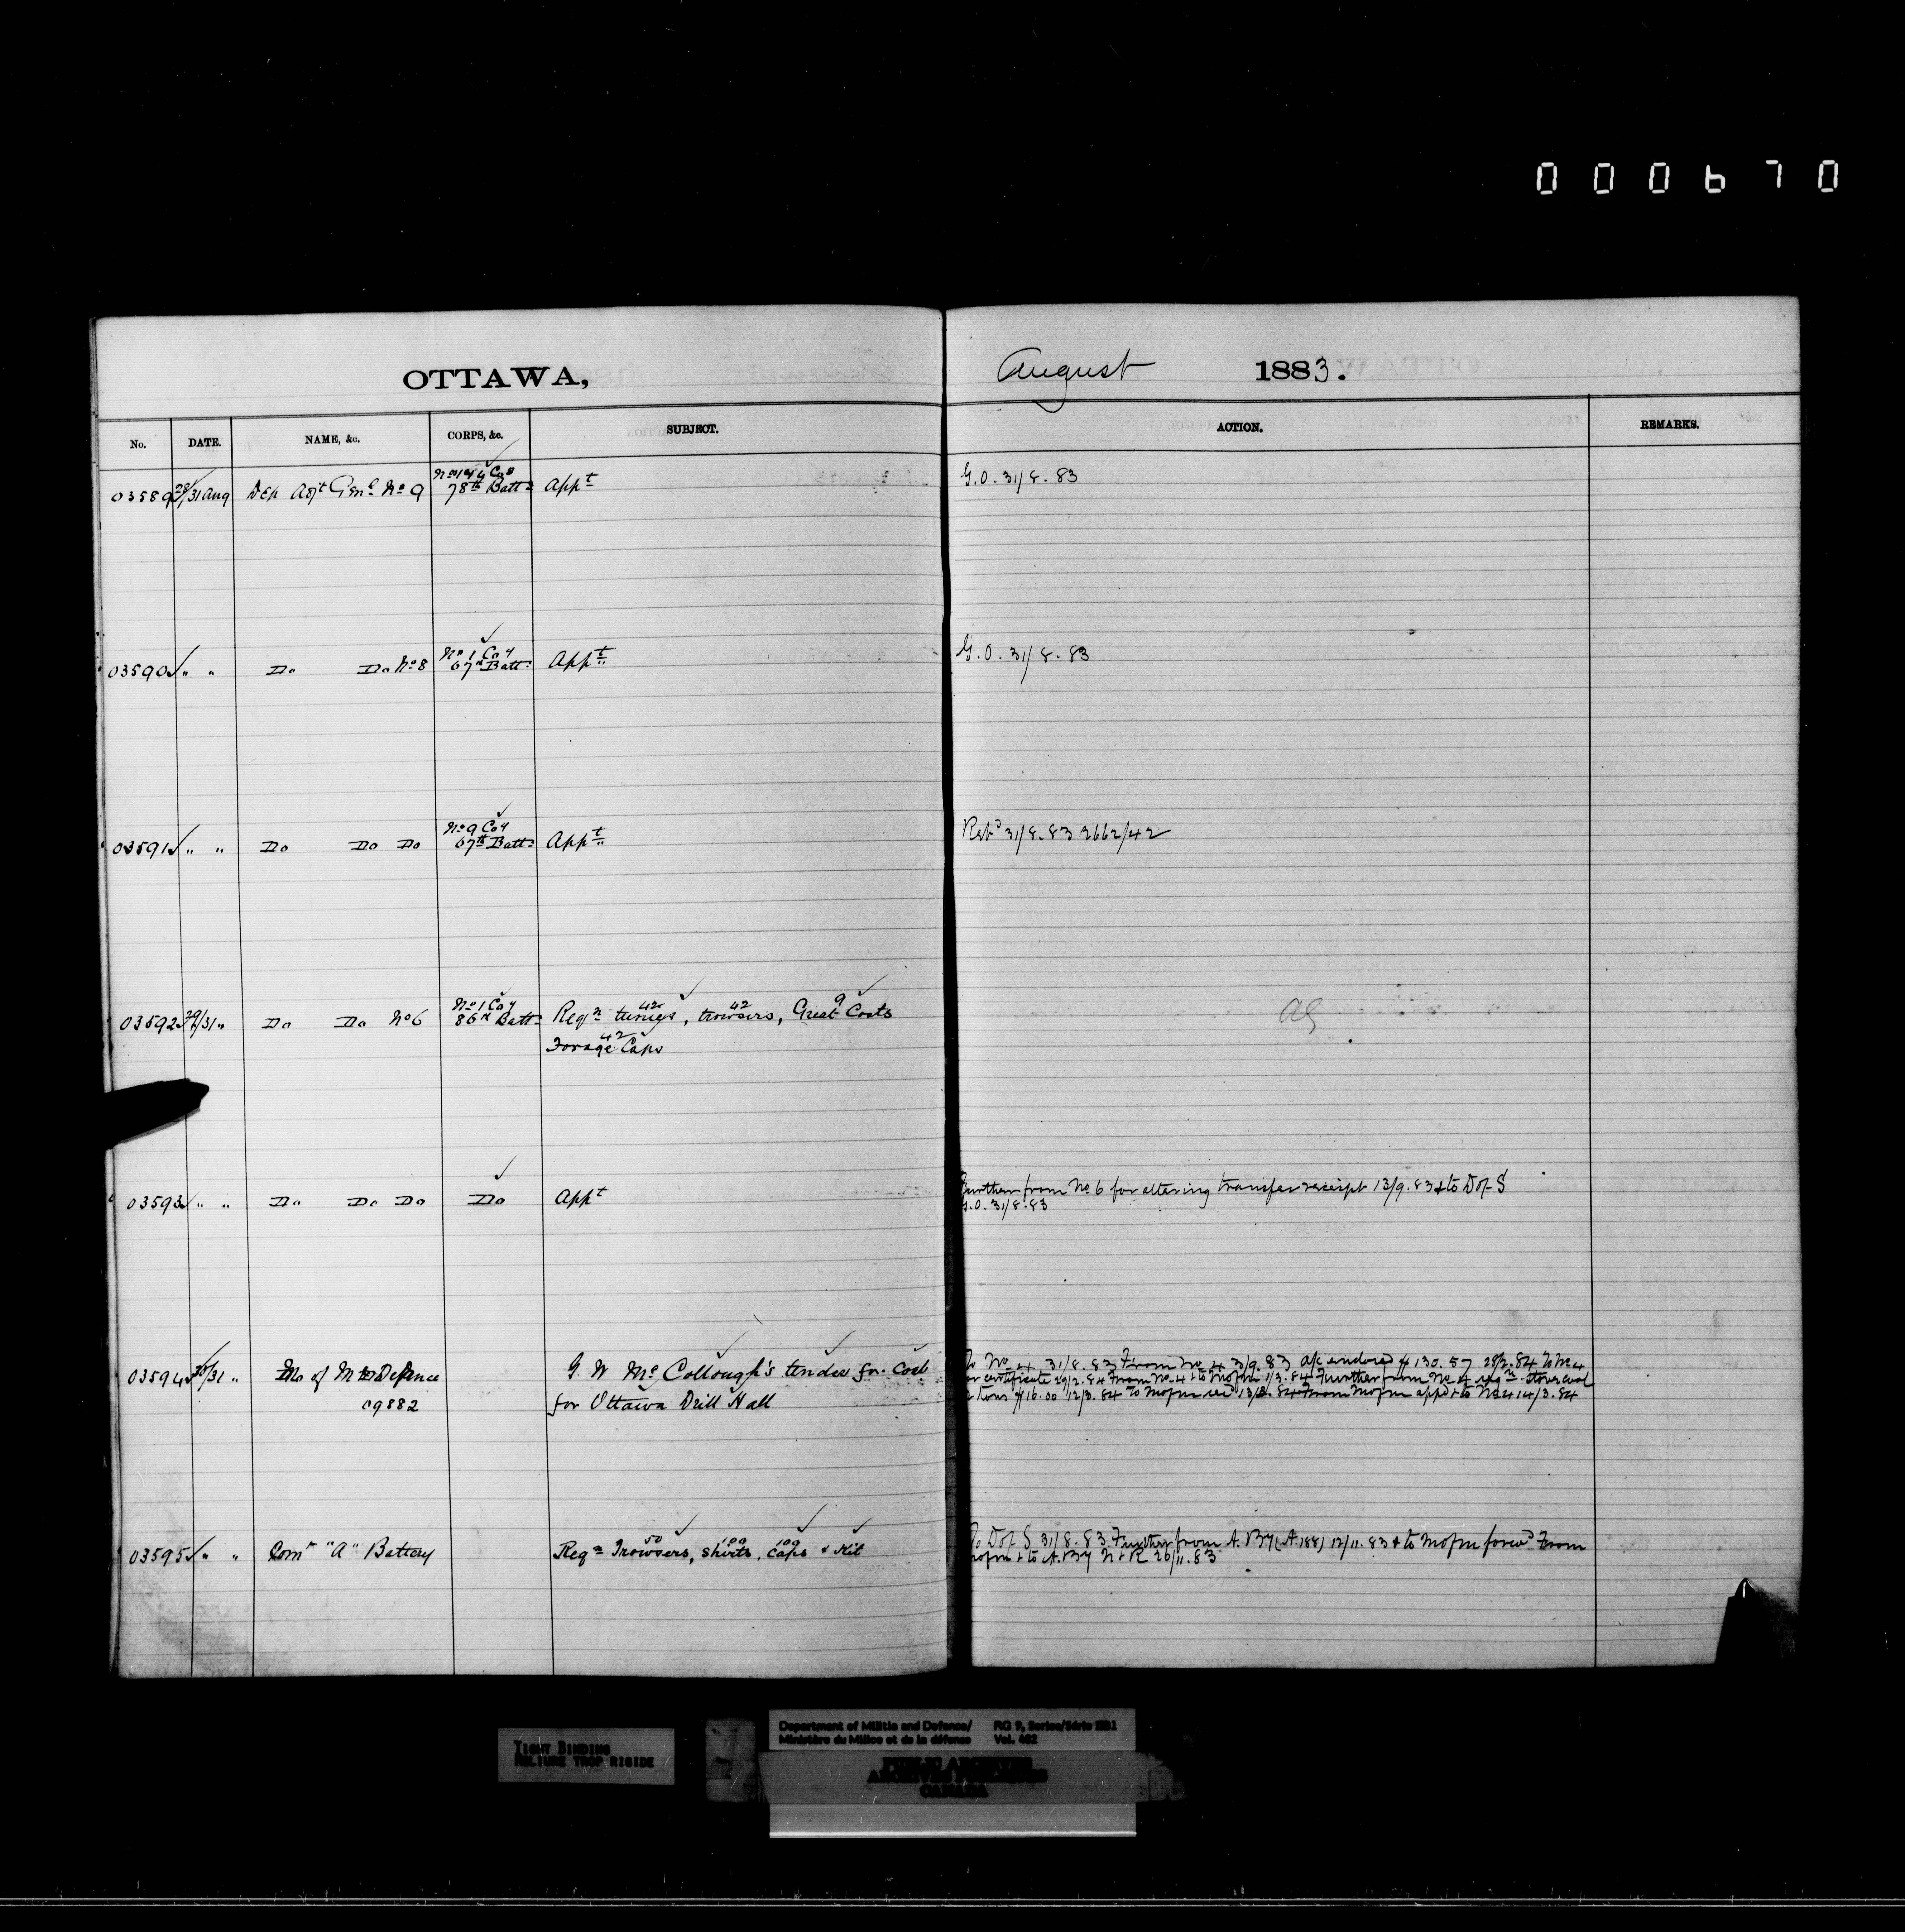 000670
OTTAWA, August 1883.
No. DATE. NAME, &c. CORPS, &c. SUBJECT. ACTION. REMARKS.
No 1 & 4 Coy
03589 28/31 Aug Dep Adjt Genl No 9 78th Battn Appt G.O. 31/8.83
No 1 Coy
03590 " " Do Do No 8 67th Battn Appt G.O. 31/8.83
No 9 Coy
03591 " " Do Do Do 67th Battn Appt Retd 31/8.83 2662/42
No 1 Coy 42 42 9
03592 29/31 " Do Do No 6 86th Battn Reqn tunics, trowsers, Great Coats AG
42
Forage Caps
Further from No 6 for altering transfer receipt 13/9.83 & to D of S
03593 " " Do Do Do Do Appt G.O. 31/8.83
03594 30/31 " M of M & Defence G. W McCollough's tender for Coal
09882 for Ottawa Drill Hall
To No 4 31/8.83 From No 4 3/9.83 a/c endored $130.57 28/2.84 To No 4
for certificate 29/2.84 From No 4 & to Mofm 1/3.84 Further from No 4 reqn stove coal
2 tons $16.00 12/3.84 To Mofm rec 13/3.84 From Mofm appd & to No 4 14/3.84
50 100 100
03595 " " Comt "A" Battery Reqn Trowsers, shirts, caps & Kit
To D of S 31/8.83 Further from A. By (A.188) 12/11.83 & to Mofm forwd From
Mofm & to A.By N & R 26/11.83
TIGHT BINDING
RELIURE TROP RIGIDE
Department of Militia and Defence/ RG 9, Series/Série IIB1
Ministère du Milice et de la défense Vol. 462
PUBLIC ARCHIVES
ARCHIVES PUBLIQUES
CANADA